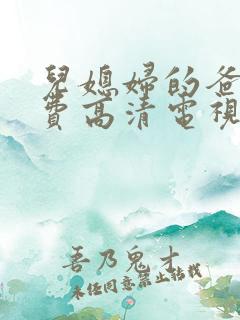 兒媳婦的爸
費高清電視
吾乃鬼才
未經同意禁止轉載